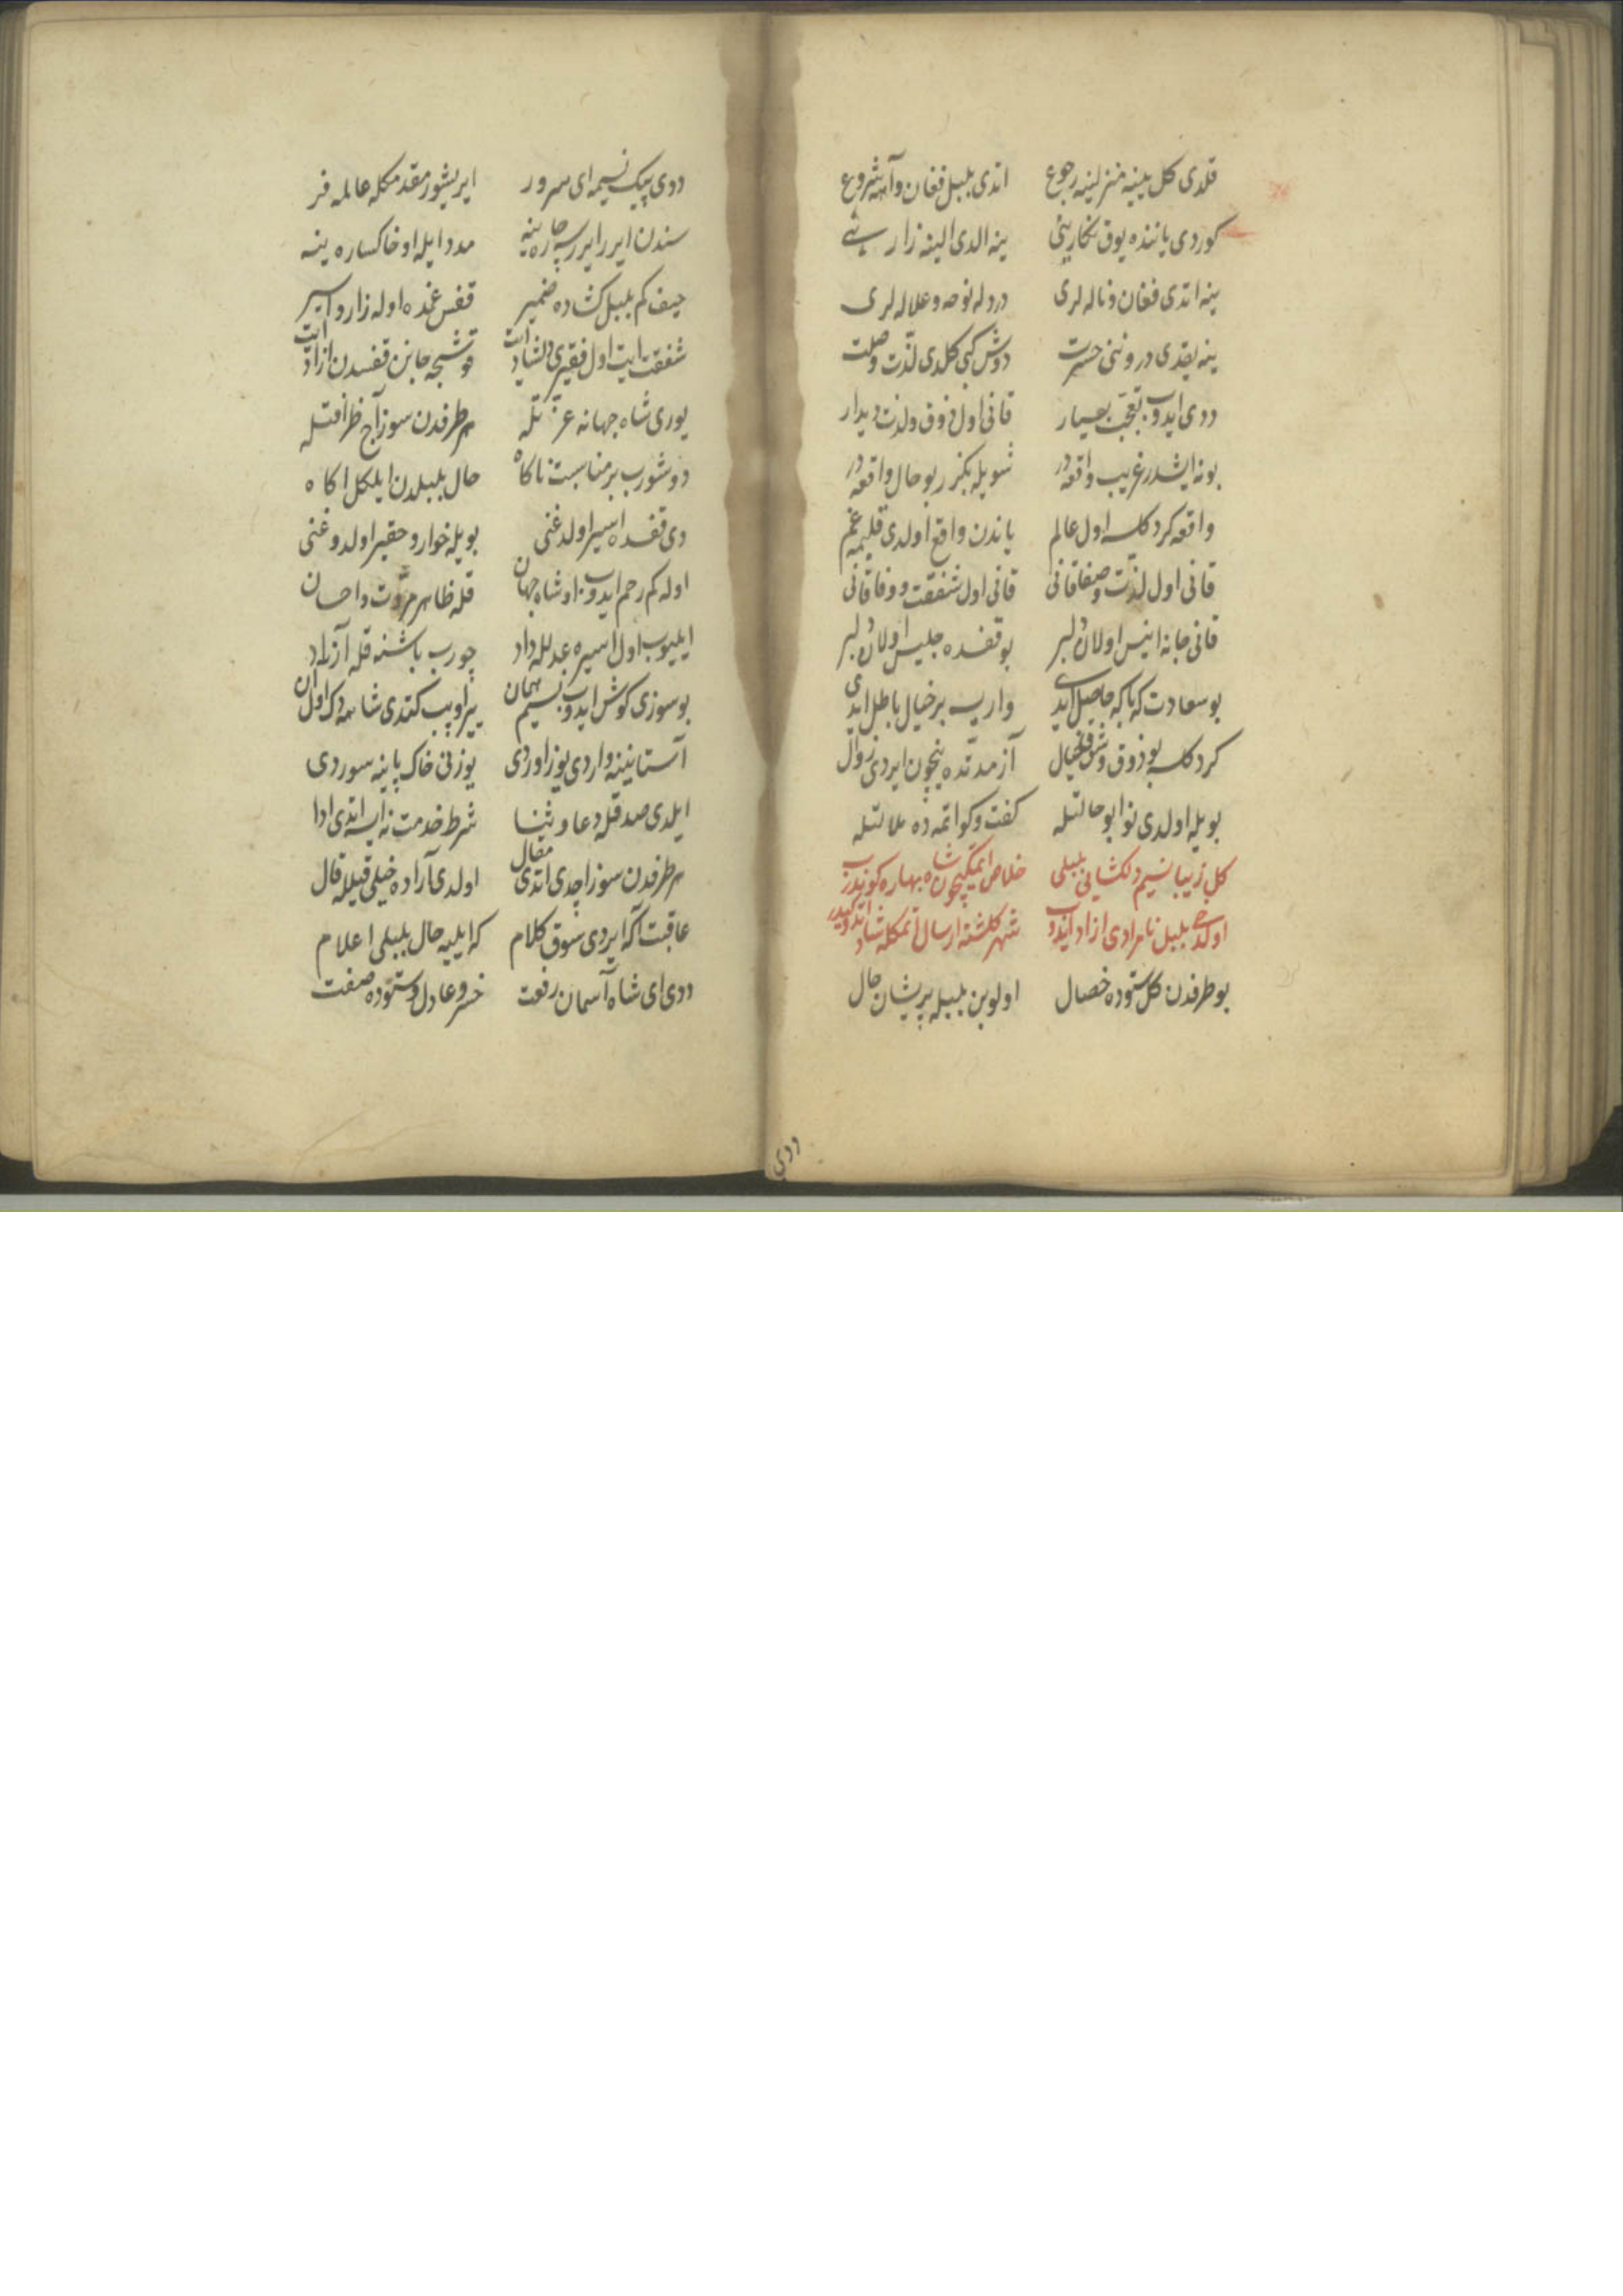 قلدی کل یینه منزلینه رجوع اتدی بلبل فغان و آهه شروع
کوردی یاننده یوق نکارینی ینه الدی الینه زارینی
ینه اتدی فغان و ناله لری درد له نوحه و علاله لری
ینه یقدی دروننی حسرت دوش کبی کلدی لذت وصلت
ددی ایدوب تعجب بسیار قانی اول ذوق و لذت دیدار
بونه ایشدر غریب واقعه در شویله بکزر بو حال واقعه در
واقعه کردکلسه اول عالم یاندن واقع اولدی قلبمه غم
قانی اول لذت و صفا قانی قانی اول شفقت و وفا قانی
قانی جانه انیس اولان دلبر بو قفسده جلیس اولان دلبر
بو سعادت که باکه حاصل ایدی واریسه بر خیال باطل ایدی
کردکلسه بو ذوق وش خیال آز مدتده نیچون ایردی زوال
بویله اولدی نوا بو حالتله کفت و کو اتمده ملالتله
کل زیبا نسیم دلکشایی بلبلی خلاص ایتمکیچون شاه بهاره کوندرب
اولدخی بلبل نامرادی ازاد ایدوب شهر کلشنه ارسال اتمکله شاد اتدوکیدر
بو طرفدن کل ستوده خصال اولوبن بلبله پریشان حال
ددی
ددی پیک نسیمه ای سرور ایریشور مقدمکله عالمه فر
سندن ایرر ایررسه چاره ینه مدد ایله او خاکساره ینه
حیف کم بلبل کشاده ضمیر قفس غمده اوله زار و اسیر
شفقت ایت اول فقیری دلشاد ایت قوشجه جانن قفسدن ازاد ایت
یوری شاه جهانه عزتله هر طرفدن سوز آچ ظرافتله
دوشورب بر مناسبت ناکاه حال بلبلدن ایلکل اکاه
دی قفسده اسیر اولدغنی بویله خوار و حقیر اولدوغنی
اوله کم رحم ایدوب او شاه جهان قله ظاهر مروت و احسان
ایلیوب اول اسیره عدلله داد چورب باشنه قله آزاد
بو سوزی کوش ایدوب نسیم همان ییر اوپب کتدی شاهه دک اول ان
آستانینه واردی یوز اوردی یوزنی خاک پاینه سوردی
ایلدی صدقله دعا و ثنا شرط خدمت نه ایسه اتدی ادا
هر طرفدن سوز اچدی اتدی مقال اولدی آراده خیلی قیل قال
عاقبت آکه ایردی سوق کلام که ایلیه حال بلبلی اعلام
ددی ای شاه آسمان رفعت خسرو عادل و ستوده صفت